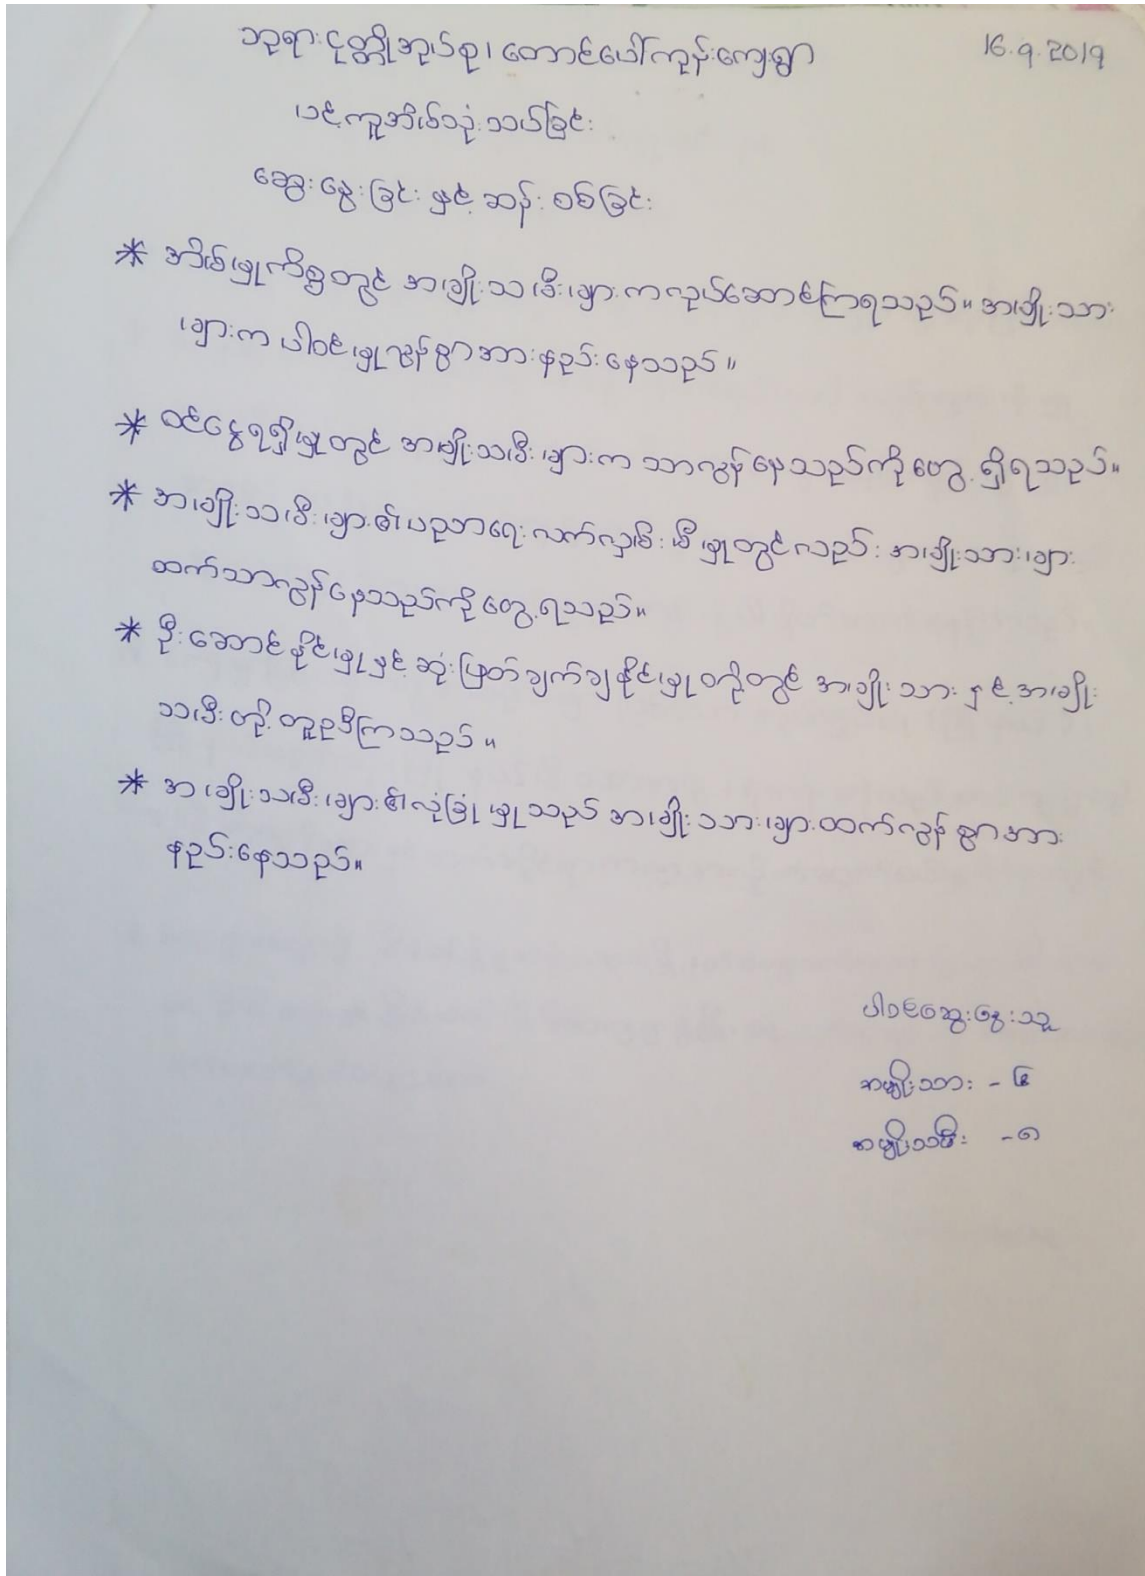 ဘုရားငုတ္တိုအုပ်စု၊ တောင်ပေါ်ကုန်းကျေးရွာ 16.9.2019
ပင့်ကူအိမ်သုံးသပ်ခြင်း
ဆွေးနွေးခြင်းနှင့် ဆန်းစစ်ခြင်း
* အိမ်မှုကိစ္စတွင် အမျိုးသမီးများကလုပ်ဆောင်ကြရသည်။ အမျိုးသား
များက ပါဝင်မှုလွန်စွာအားနည်းနေသည်။
* ဝင်ငွေရရှိမှုတွင် အမျိုးသမီးများက သာလွန်နေသည်ကိုတွေ့ရှိရသည်။
* အမျိုးသမီးများ၏ပညာရေးလက်လှမ်းမီမှုတွင်လည်း အမျိုးသားများ
ထက်သာလွန်နေသည်ကိုတွေ့ရသည်။
* ဦးဆောင်နိုင်မှုနှင့် ဆုံးဖြတ်ချက်ချနိုင်မှုတို့တွင် အမျိုးသားနှင့်အမျိုး
သမီးတို့ တူညီကြသည်။
* အမျိုးသမီးများ၏လုံခြုံမှုသည် အမျိုးသားများထက်လွန်စွာအား
နည်းနေသည်။
ပါဝင်ဆွေးနွေးသူ
အမျိုးသား -
အမျိုးသမီး - ၈